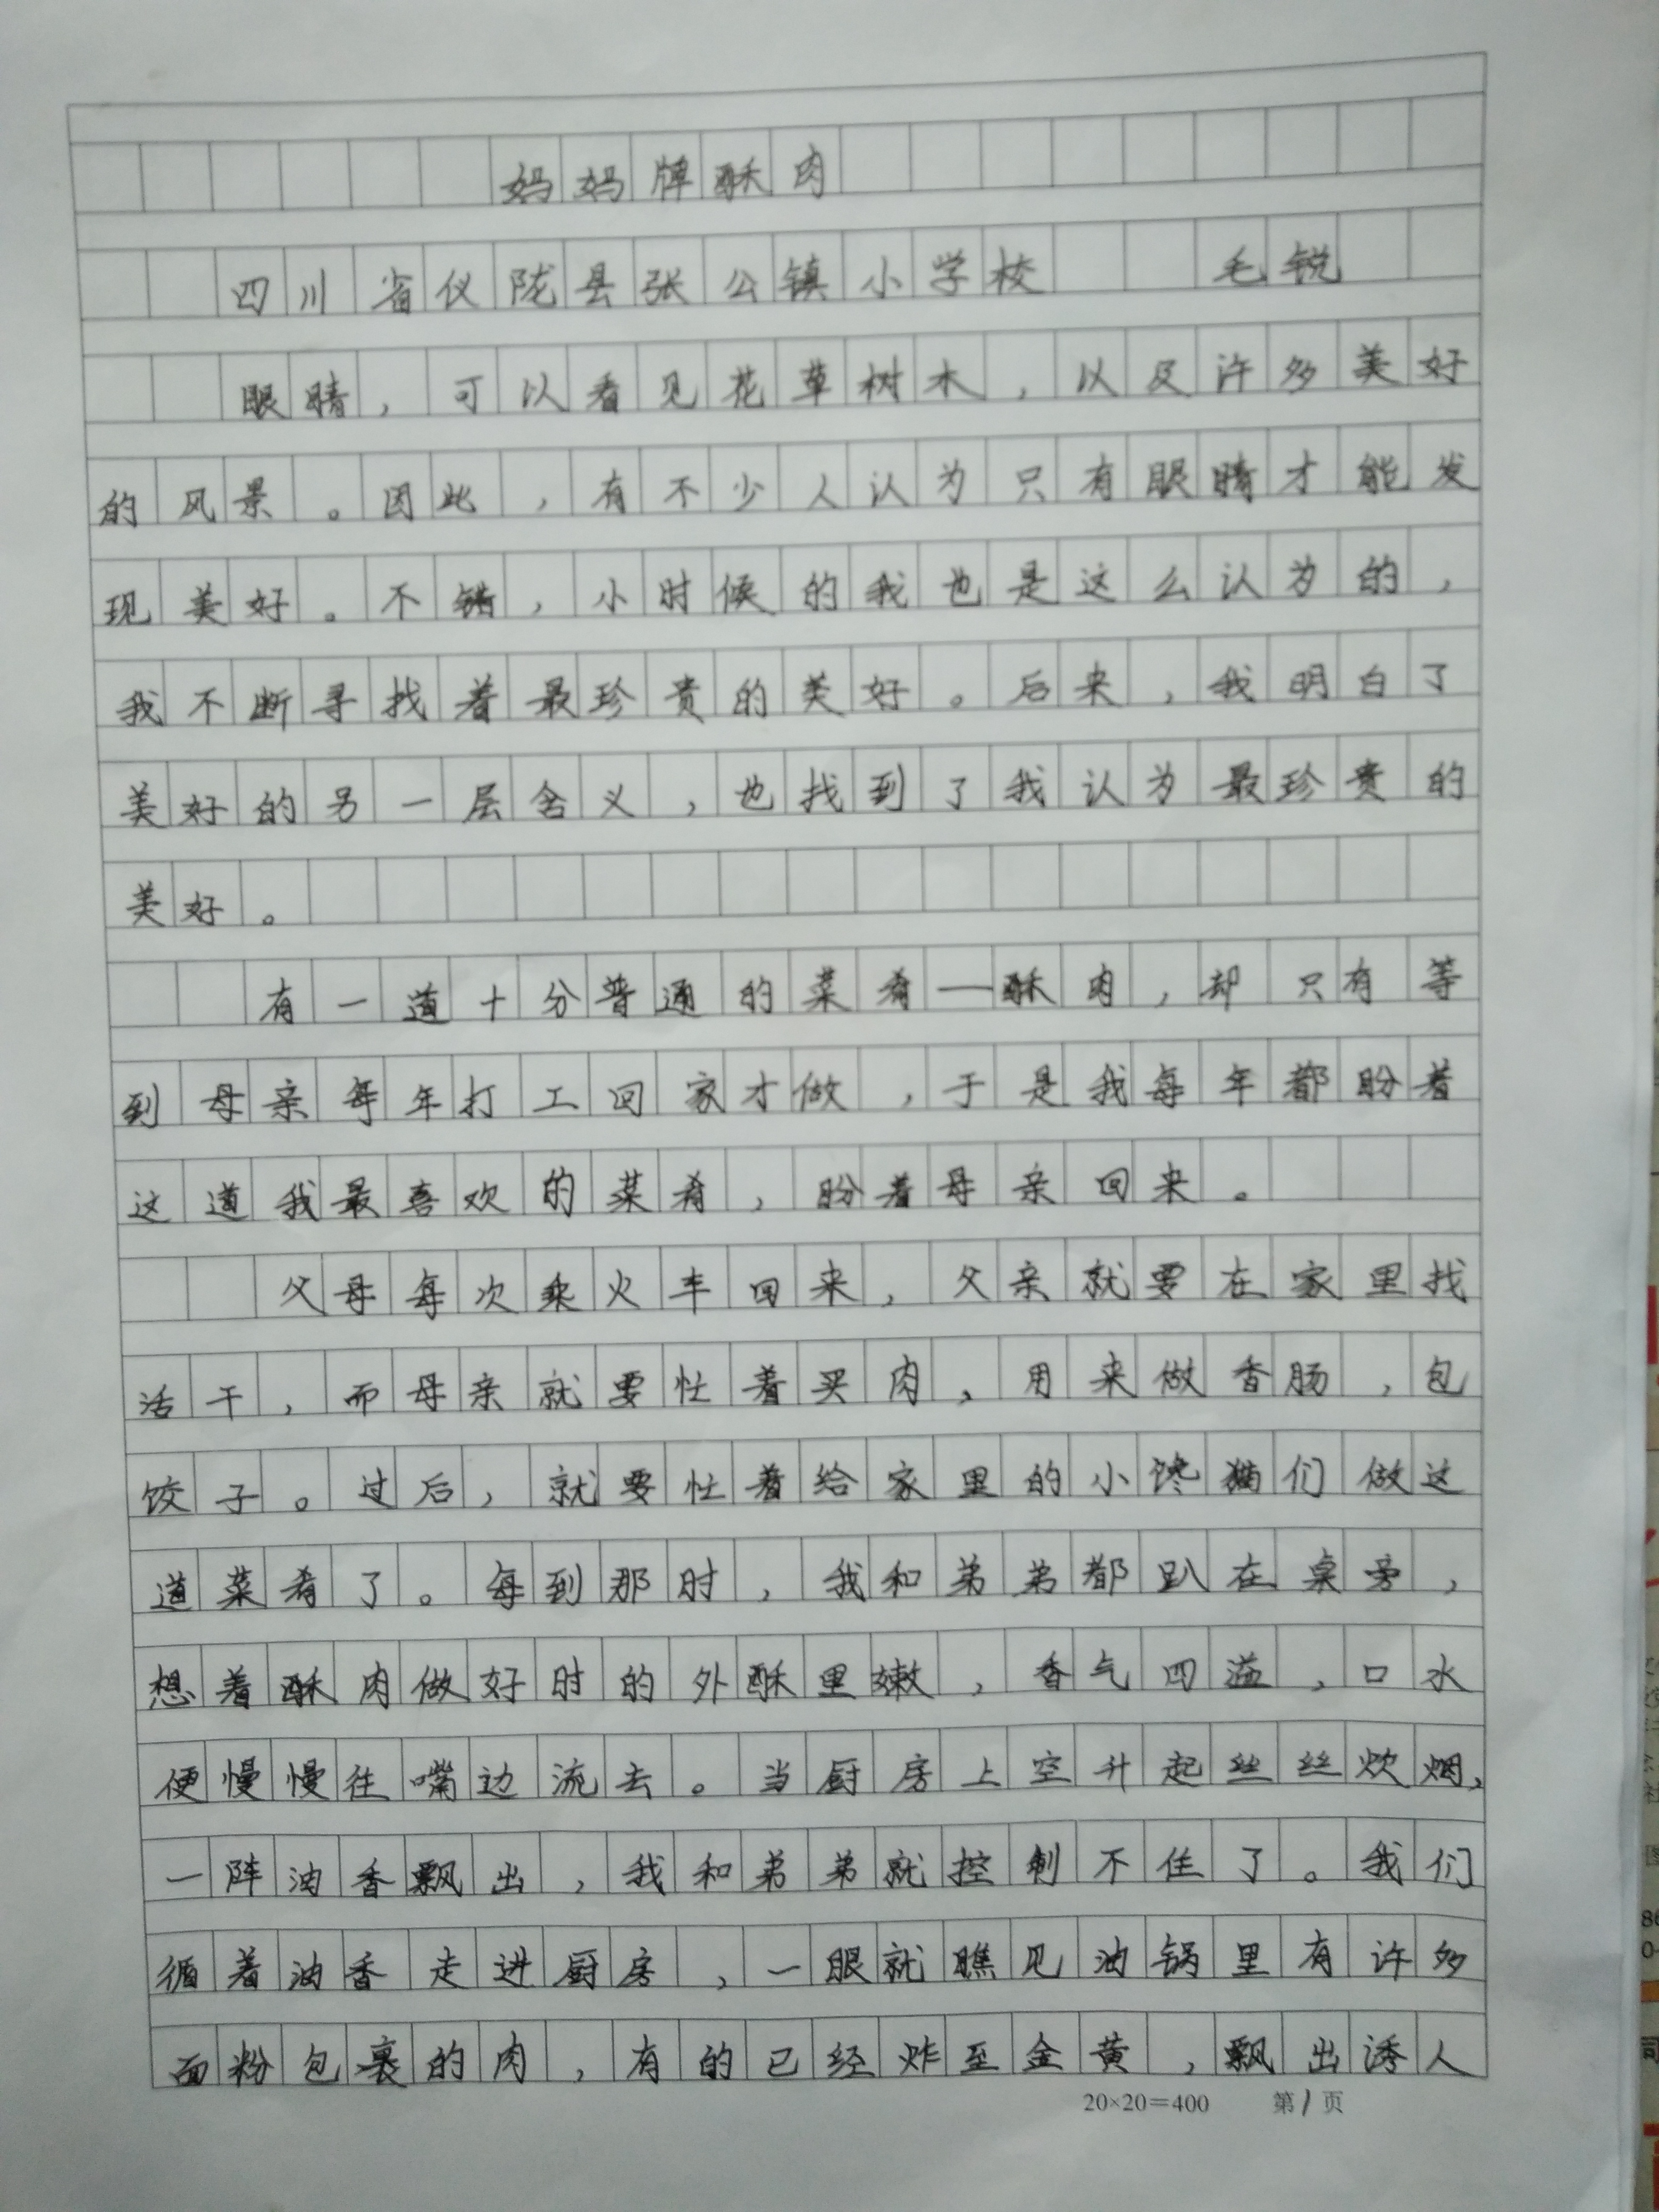 妈妈牌酥肉
四川省仪陇县张公镇小学校 毛锐
眼睛，可以看见花草树木，以及许多美好
的风景。因此，有不少人认为只有眼睛才能发
现美好。不错，小时候的我也是这么认为的，
我不断寻找着最珍贵的美好。后来，我明白了
美好的另一层含义，也找到了我认为最珍贵的
美好。
有一道十分普通的菜肴—酥肉，却只有等
到母亲每年打工回家才做，于是我每年都盼着
这道我最喜欢的菜肴，盼着母亲回来。
父母每次乘火车回来，父亲就要在家里找
活干，而母亲就要忙着买肉，用来做香肠，包
饺子。过后，就要忙着给家里的小馋猫们做这
道菜肴了。每到那时，我和弟弟都趴在桌旁，
想着酥肉做好时的外酥里嫩，香气四溢，口水
便慢慢往嘴边流去。当厨房上空升起丝丝炊烟，
一阵油香飘出，我和弟弟就控制不住了。我们
循着油香走进厨房，一眼就瞧见油锅里有许多
面粉包裹的肉，有的已经炸至金黄，飘出诱人
20×20=400 第1页